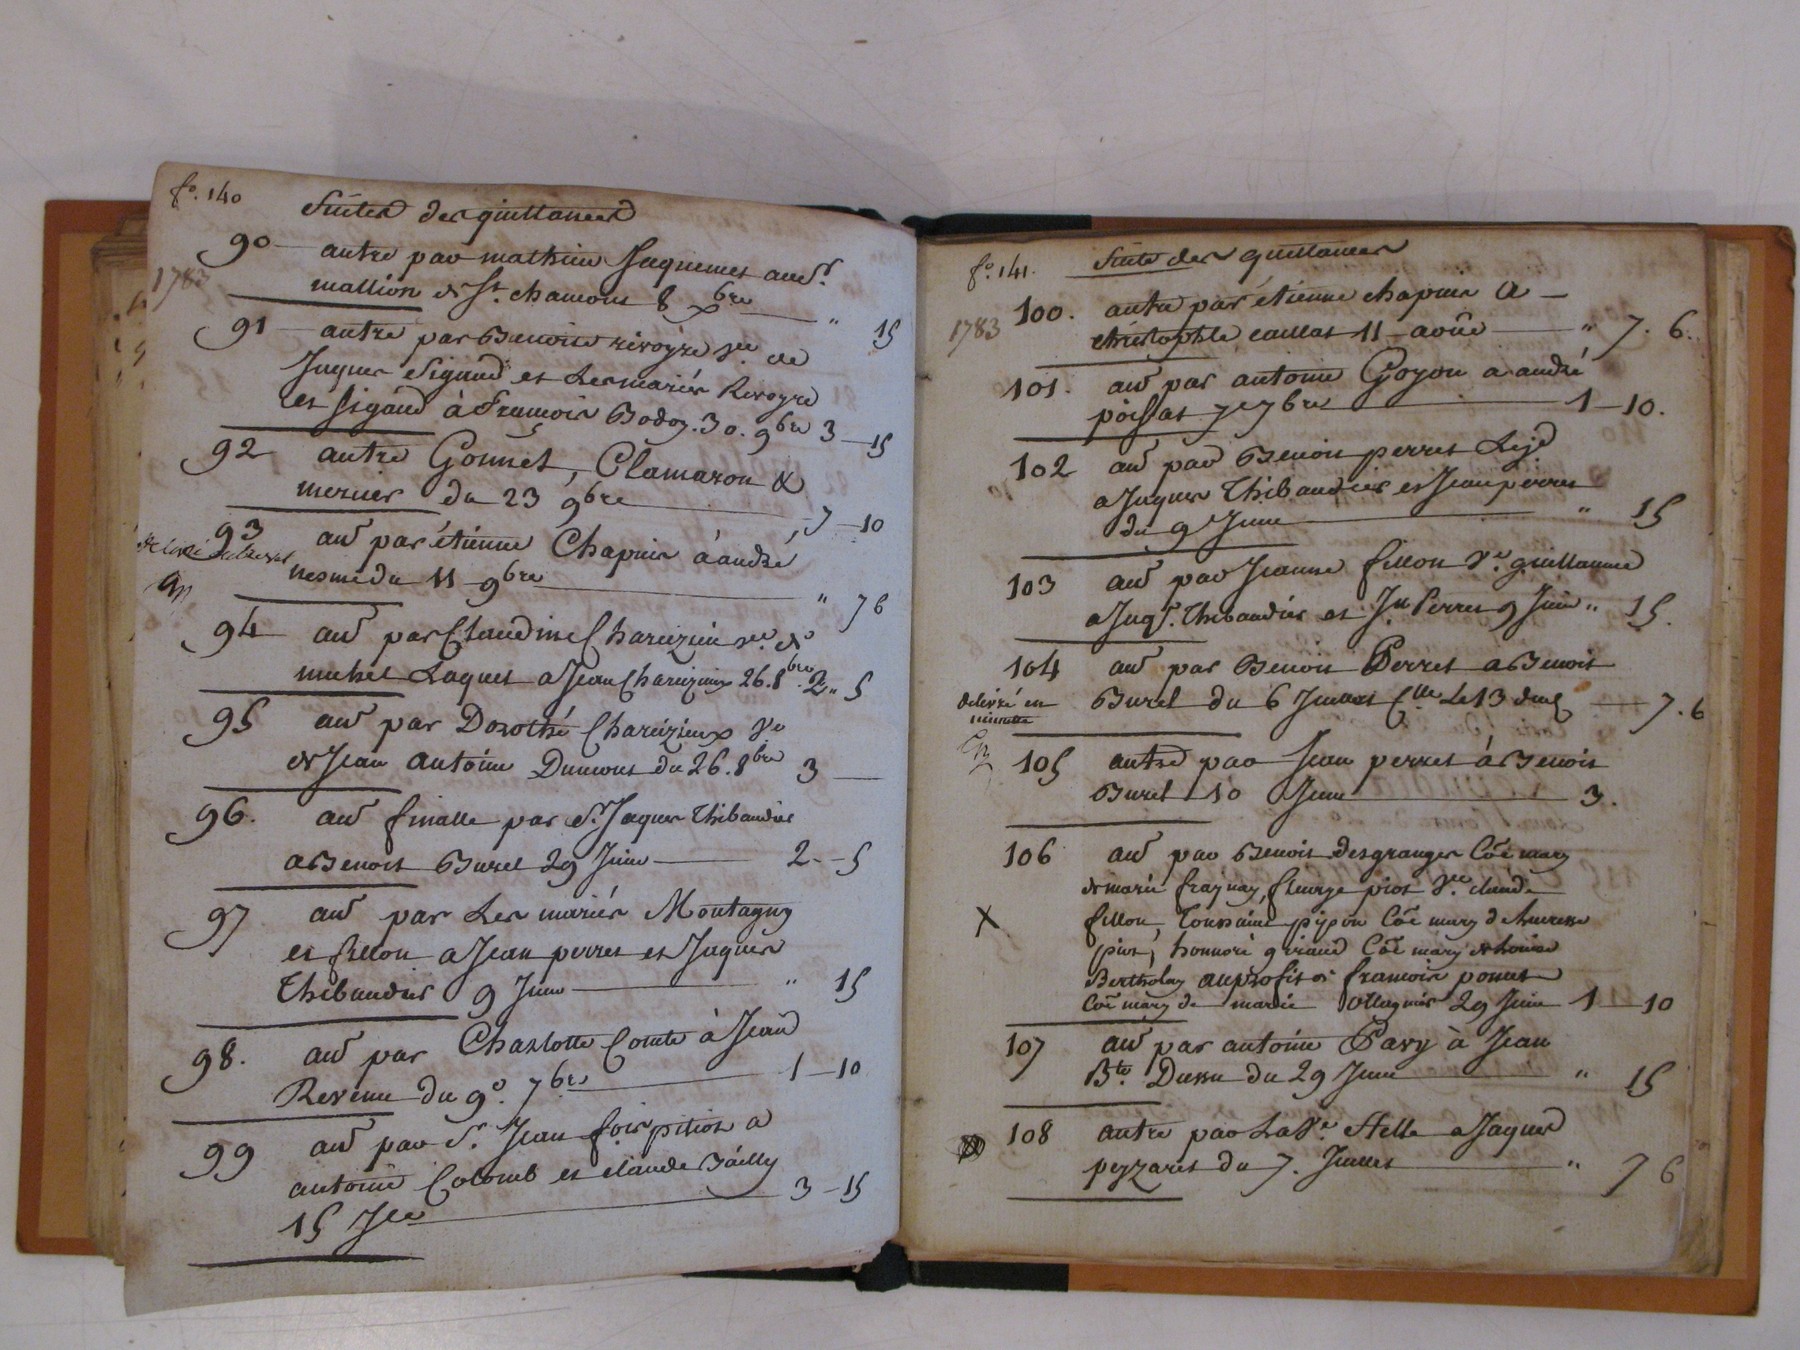 fo. 140
Suites des quittances
1783
90 autre par mathieu Jaquemet au sr.
mallion de St. chamond 8 xbre " 15
91 autre par Benoite rivoyre ve. de
Jaques Sigaud et Les mariés Rivoyre
et Sigaud à Francois Bodoy. 30. 9bre 3 15
92 autre Gonnet, Clamaron &
mernier du 23 9bre 7 10
93 au par étienne Chapuis à andré
nesme du 11 9bre " 7 6
94 au par Claudine Charézieu ve. de
michel Laquet a Jean Charézieux 26. 8bre. 2 " 5
95 au par Dorothé Charézieux ve
de Jean antoine Dumont du 26. 8bre 3
96. au finalle par Sr. Jaques Thibaudier
a Benoit Burel 29 Juin 2. 5
97 au par Les mariés Montagny
et fillon a Jean perret et Jaques
Thibaudier 9 Juin " 15
98. au par Charlotte Comte à Jean
Revenu du 9o. 7bre 1 10
99 au par Sr. Jean fois pition a
antoine Colomb et claude Bailly
15 3 15
fo. 141.
Suite des quittances
1783
100. autre par étienne chapuis a
christophle caillat 11 août " 7. 6.
101. au par antoine Goyon a andré
poissat 7e 7bre 1 10.
102 au par Benoit perret
a Jaques Thibaudier et Jean perret
du 9 Juin " 15
103 au par Jeanne fillon ve. guillaume
a Jaqs. Thibaudier et Jn. Perret 9 Juin " 15.
104 au par Benoit Perret a Benoit
delivré en
minutte
Burel du 6 Juillet Clle Le 13 dud 7. 6
105 autre par Jean perret à Benoit
Burel 10 Juin 3.
106 au par Benoit desgranges Coe mary
de marie fraynay, fleurye piot ve. claude
X
fillon, Toussaint pipon Coe mary de
piot, honnoré giraud Coe mary de
Bertholay au profit de francois pomet
Coe mary de marie ollagnier 29 Juin 1 10
107 au par antoine Pavy à Jean
Bte. du 29 Juin " 15
108 autre par La Ve. Stelle a Jaques
peyzaret du 7. Juillet " 7 6